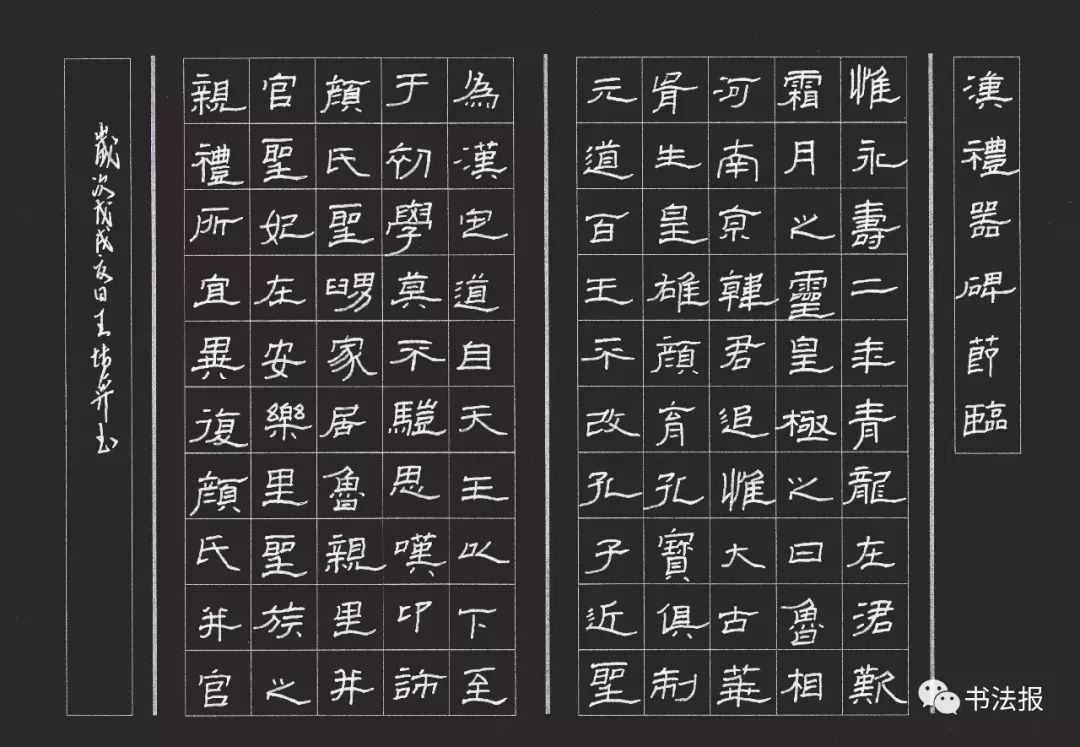 漢禮器碑節臨
惟永壽二年青龍在涒歎
霜月之靈皇極之日魯相
河南京韓君追惟大古華
胥生皇雄顏育孔寶俱制
元道百王不改孔子近聖
為漢定道自天王以下至
于初學莫不驥思嘆卬師
顏氏聖舅家居魯親里并
官聖妃在安樂里聖族之
親禮所宜異復顏氏并官
歲次戊戌夏日王書
书法报